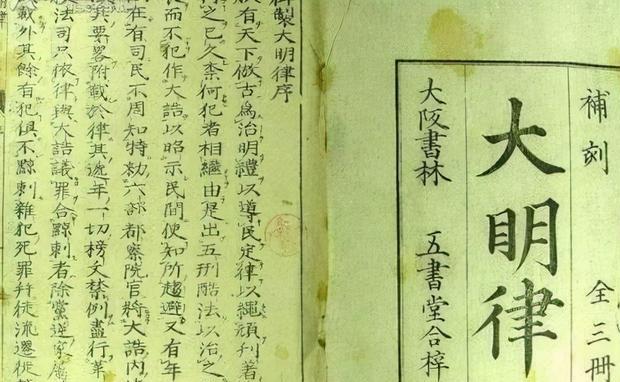 補刻 全三冊
大明律
大阪書林 五書堂合梓
製大明律序
有天下倣古爲治明禮以導民定律以繩頑刊著
之已久柰何犯者相繼由是出五刑酷法以治之
而不犯作大誥以昭示民間使知所趨避又有年
在有司民不周知特勑六部都察院官將大誥内
其要畧附載於律其遞年一切榜文禁例盡行革
法司只依律與大誥議罪合黥刺者除黨逆家
載外其餘有犯俱不黥刺雜犯死罪幷徒流遷徙